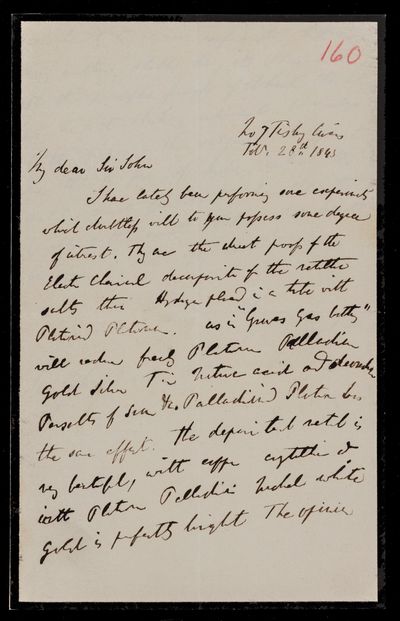 160
No 7 Finsbury Circus
Feb. 28th 1843
My dear Sir John
I have lately been performing some experiments
which doubtless will to you possess some degree
of interest. They are the direct proof of the
Electro Chemical decomposition of the metallic
salts thus Hydrogen placed in a tube with
Platinized Platinum. as in "Groves Gas battery"
will reduce freely Platinum Palladium
Gold Silver Tin Nitric acid and
Persalts of Iron &c. Palladium Platinum has
the same effect. The deposited metal is
very beautiful, with copper crystalline &
with Platinum Palladium Nickel white
Gold is perfectly bright The opinion